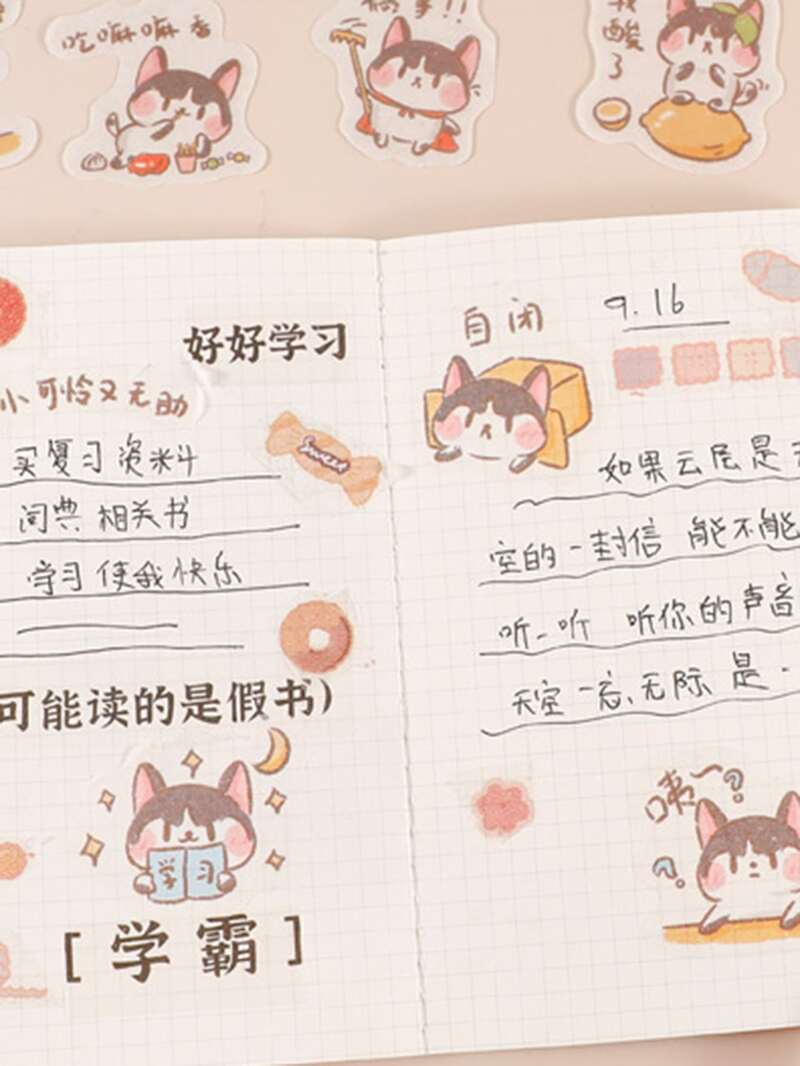 吃嘛嘛香
搞事!!
酸
了
好好学习
小可怜又无助
买复习资料
Sweet
词典 相关书
学习使我快乐
可能读的是假书)
学习
[学霸]
自闭
9.16
如果云层是天
空的一封信 能不能
听一听 听你的声音
天空一言、无际 是一
咦~?
?